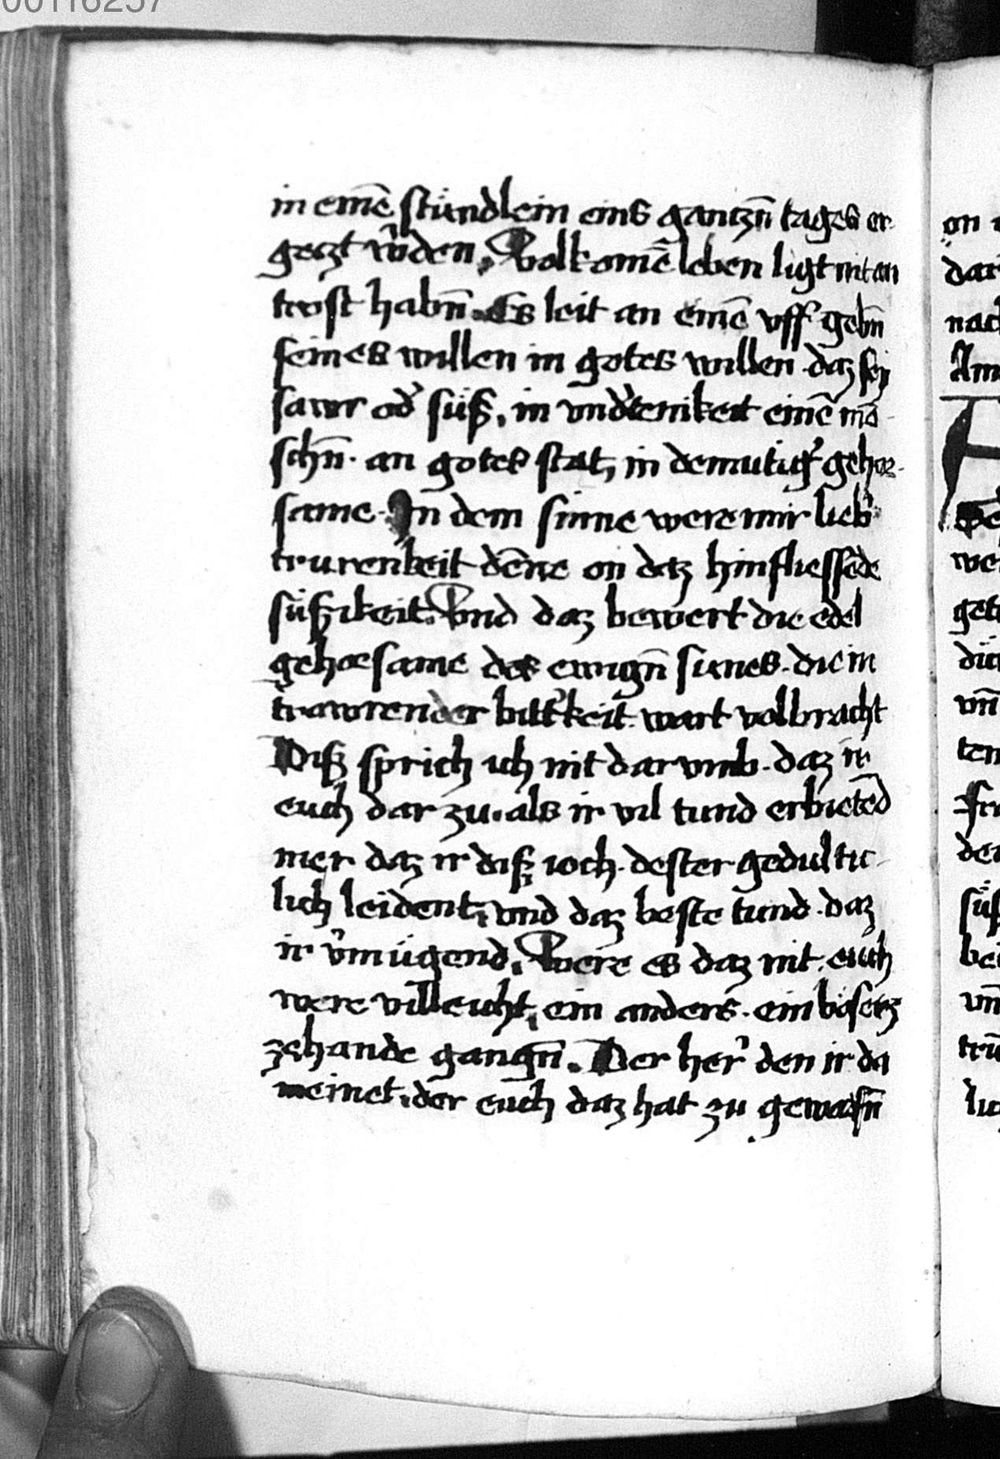 00116257
in einē stündlein eins gantzn̄ tages er
getzt w̓den. Volkomē leben ligt nit an
trost habn̄. Es leit an einē vff gebn̄
seines willen in gotes willen. daz sey
sawr od̓ süß, in vnd̓tenikeit einē mē
schn̄. an gotes stat, in demutig̓ gehor
same. In dem sinne were mir lieb̓
trurenkeit dēne on daz hinfliessēde
süßikeit. Vnd daz bewert die edel
gehorsame des ewign̄ sunes. die in
trawrender bitt̓keit wart volbracht
Diß sprich ich nit dar vmb. daz ir
euch dar zu. als ir vil tund erbietēd
mer daz ir diß ioch. dester gedultic
lich leident, vnd daz beste tund. daz
ir v̓mügend. Were es daz nit. euch
were villeicht, ein anders. ein bösers
zehande gangn̄. Der her̓ den ir da
meinet. der euch daz hat zu gewarfn̄
on
dar
nach
Am
wer
get
vn̄
ten
der
süß
bei
vn̄